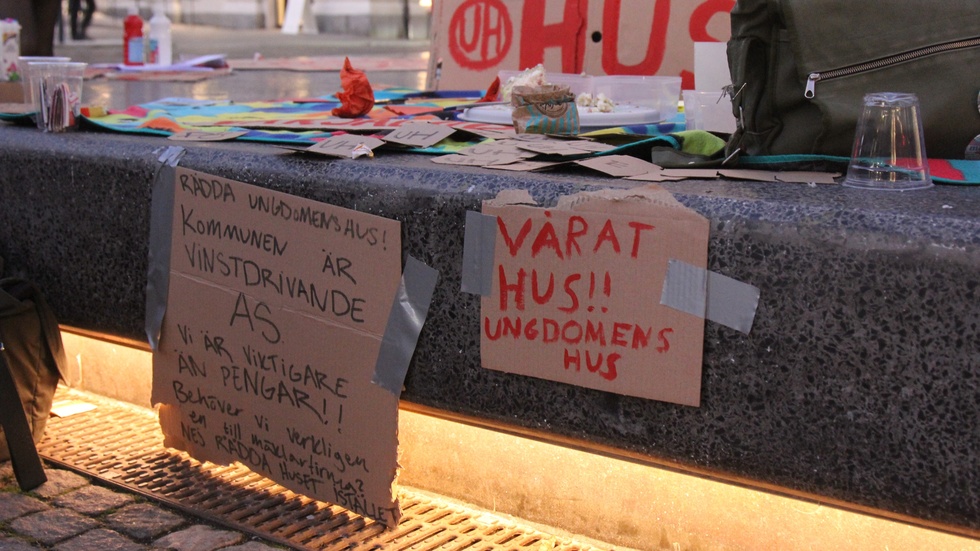 UH HUS
UH
RÄDDA UNGDOMENSHUS!
KOMMUNEN ÄR
VINSTDRIVANDE
AS
Vi ÄR VIKTIGARE
ÄN PENGAR!!
Behöver vi verkligen
en till mäklarfirma?
NEJ RÄDDA HUSET ISTÄLLET
VÅRAT
HUS!!
UNGDOMENS
HUS